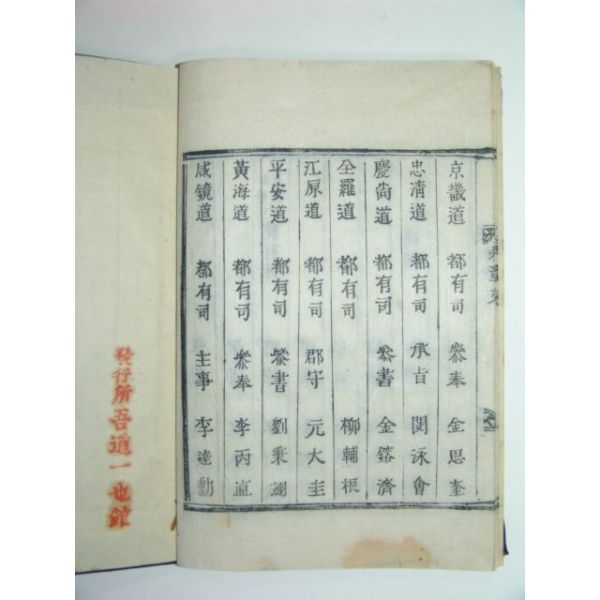 京畿道 都有司 叅奉 金思奎
忠淸道 都有司 承旨 閔泳會
慶尙道 都有司 叅書 金鎔濟
全羅道 都有司 柳輔根
江原道 都有司 郡守 元大圭
平安道 都有司 叅書 劉秉
黃海道 都有司 叅奉 李丙直
咸鏡道 都有司 主事 李達勳
發行所吾道一也舘